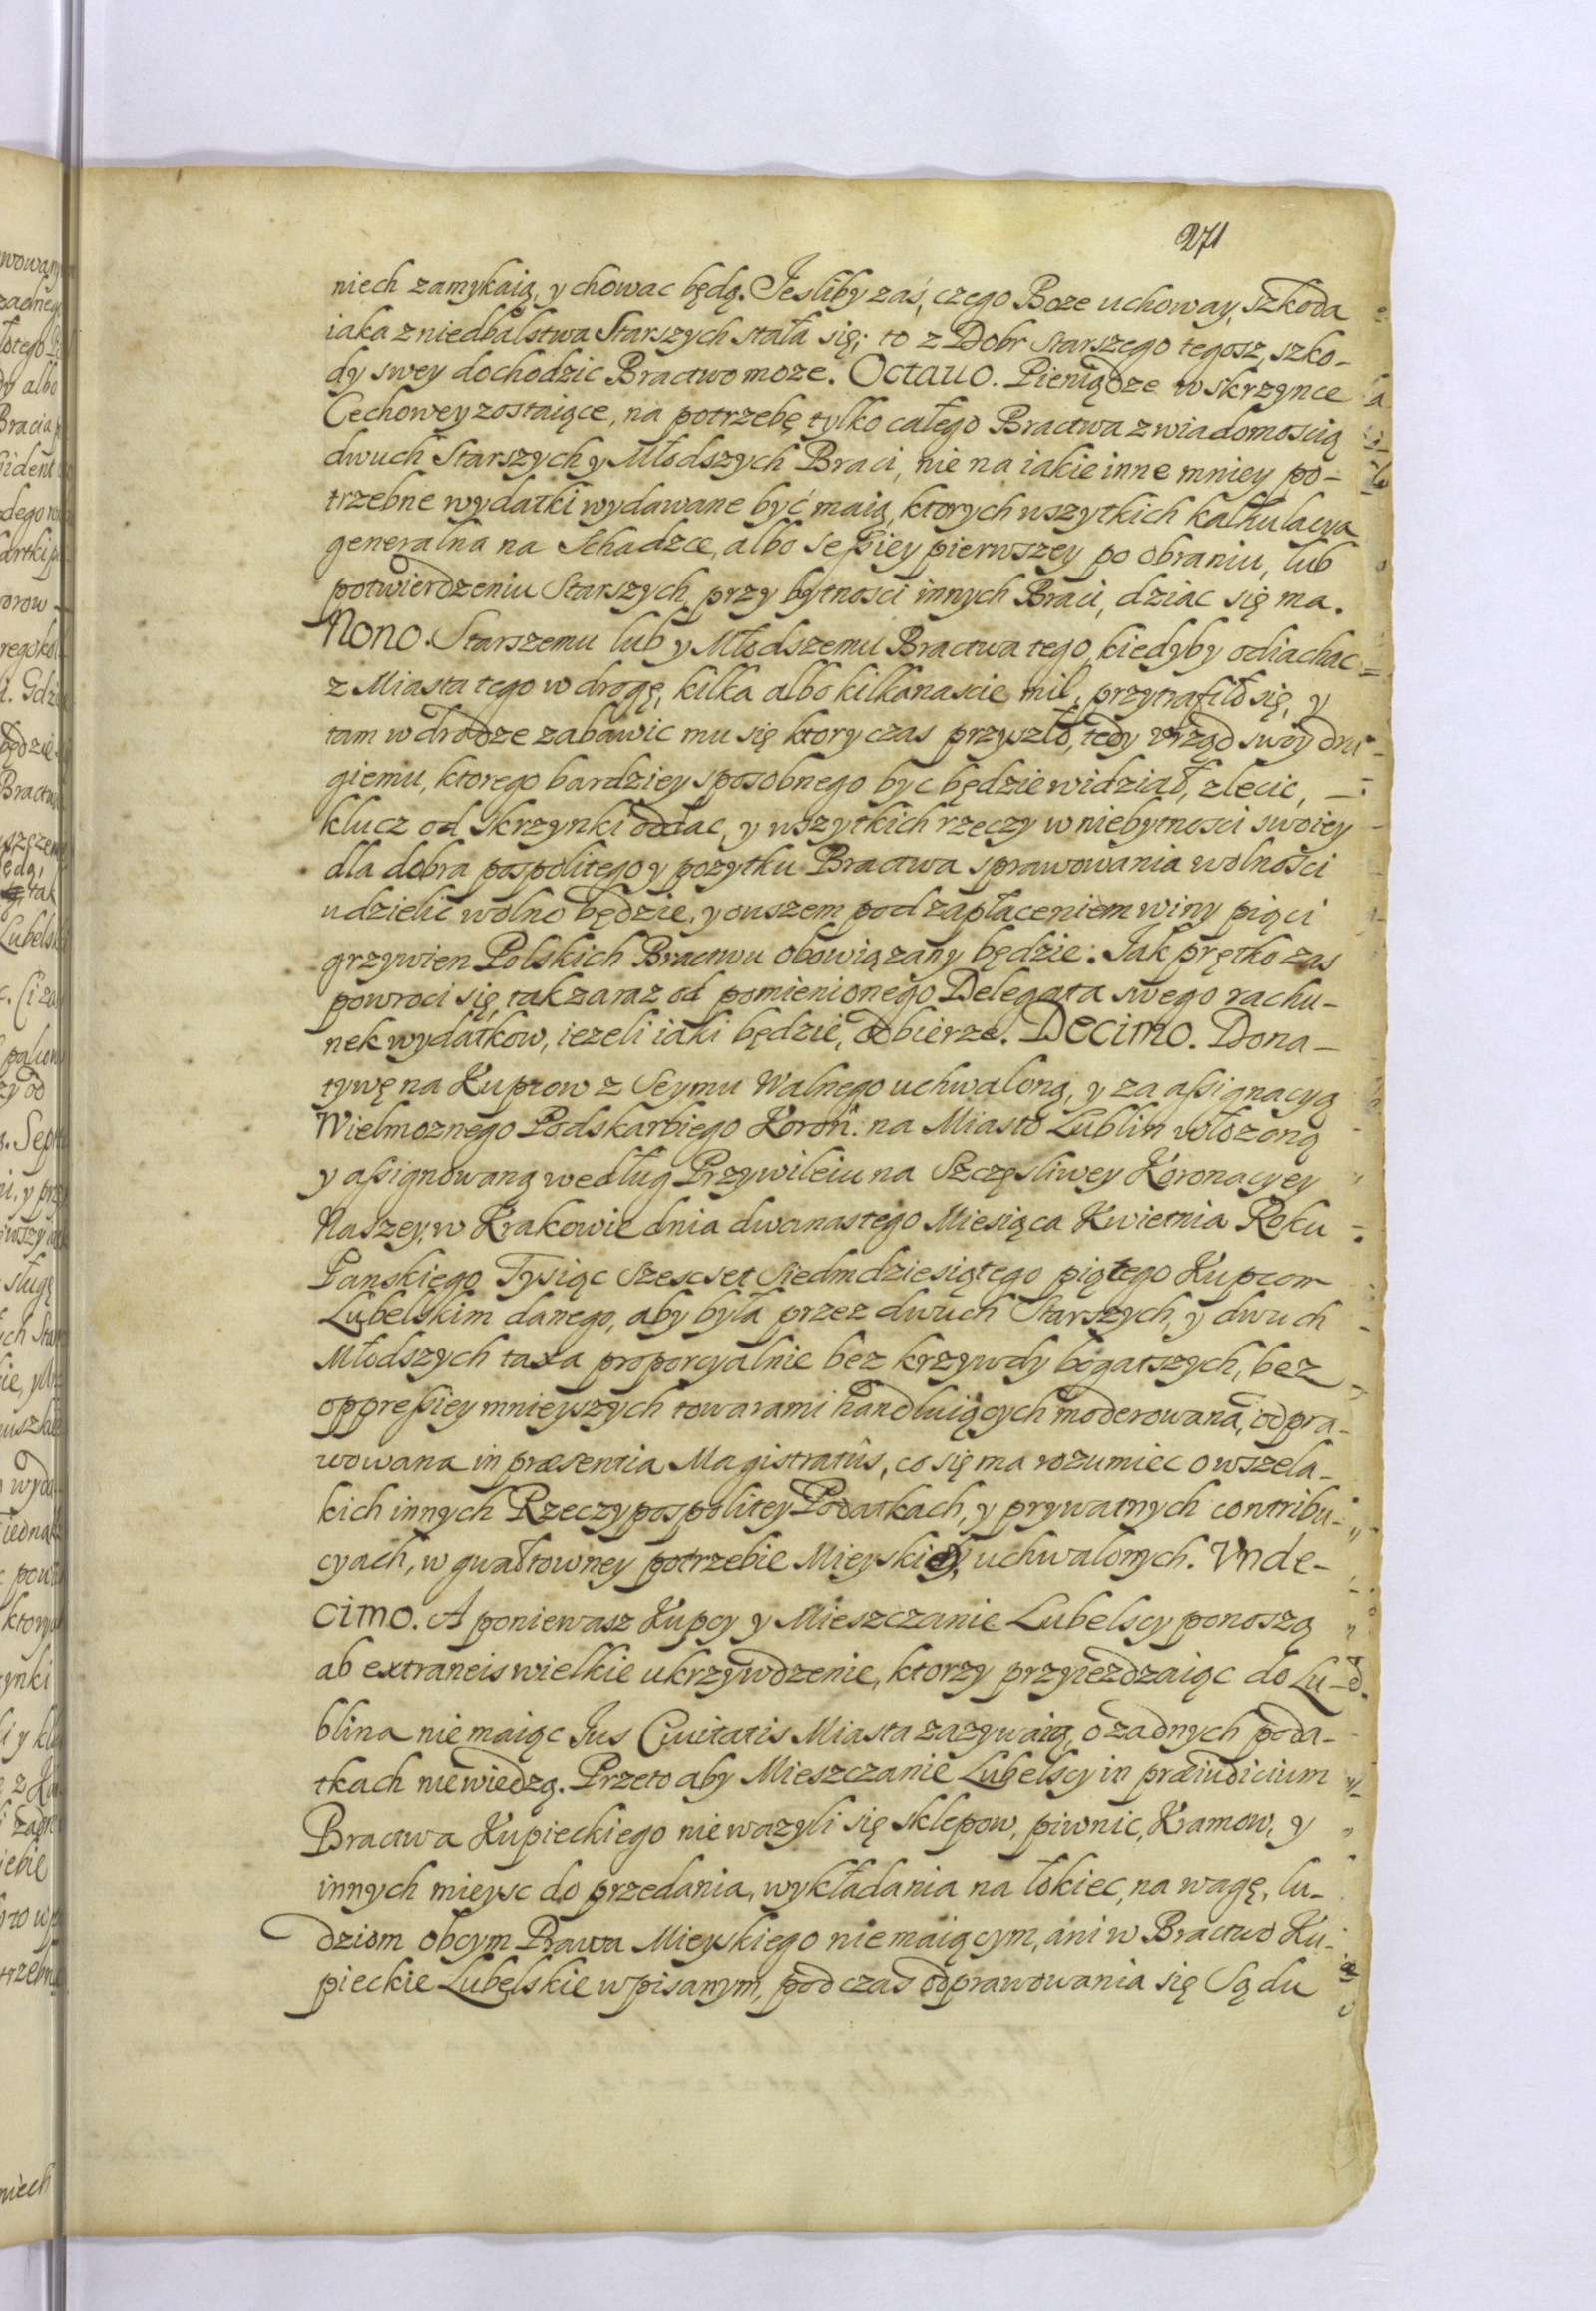 271
niech zamykaią, y chowac będą. Jesliby zaś, czego Boze uchoway, szkoda
iaka z niedbalstwa Starszych stała się; to z Dobr Starszego tegosz, szko-
dy swey dochodzic Bractwo moze. Octauo. Pieniądze w skrzynce
Cechowey zostaiące, na potrzebę tylko całego Bractwa z wiadomoscią
dwuch Starszych y Młodszych Braci, nie na iakie inne mniey po-
trzebne wydatki wydawane być maią, ktorych wszytkich kalkulacya
generalna na Schadzce, albo seßiey pierwszey po obraniu, lub
potwierdzeniu Starszych, przy bytnosci innych Braci, dziac się ma.
Nono. Starszemu lub y Młodszemu Bractwa tego, kiedyby odiachac
z Miasta tego w drogę, kilka albo kilkanascie mil, przytrafiło się, y
tam w drodze zabawic mu się ktory czas przyszło, tedy vrząd swoy dru
giemu, ktorego bardziey sposobnego byc będzie widział, zlecic, -
klucz od Skrzynki oddac, y wszytkich rzeczy w niebytnosci swoiey
dla dobra pospolitego y pozytku Bractwa sprawowania wolności
udzielic wolno będzie, y owszem pod zapłaceniem winy pięci
grzywien Polskich Bractwu obowiązany będzie: Jak prętko zas
powroci się, tak zaraz od pomienionego Delegata swego rachu-
nek wydatkow, iezeli iaki będzie, odbierze. Decimo. Dona-
tywę na Kupcow z Seymu Walnego uchwaloną, y za aßignacyą
Wielmoznego Podskarbiego Koron: na Miasto Lublin włozoną
y aßignowaną według Przywileiu na Szczęsliwey Koronacyey
Naszey, w Krakowie dnia dwanastego Miesiąca Kwietnia Roku
Panskiego Tysiąc szescset Siedmdziesiątego piątego Kupcom
Lubelskim danego, aby była przez dwuch Starszych, y dwuch
Młodszych taxa proporcyalnie bez krzywdy bogatszych, bez
oppreßiey mnieyszych towarami handluiących moderowana, odpra-
wowana in præsentia Magistratûs, co się ma rozumiec o wszela-
kich innych Rzeczypospolitey Podatkach, y prywatnych contribu-
cyach, w gwałtowney potrzebie Mieyskiey, uchwalonych. Vnde-
cimo. A poniewasz Kupcy y Mieszczanie Lubelscy ponoszą
ab extraneis wielkie ukrzywdzenie, ktorzy przyiezdzaiąc do Lu-
blina nie maiąc Jus Ciuitatis Miasta zazywaią, o zadnych poda-
tkach niewiedzą. Przeto aby Mieszczanie Lubelscy in præiudicium
Bractwa Kupieckiego nie wazyli się sklepow, piwnic, Kramow, y
innych mieysc do przedania, wykładania na łokiec, na wagę, lu-
dziom obcym Prawa Mieyskiego nie maiącym, ani w Bractwo Ku-
pieckie Lubelskie wpisanym, podczas odprawowania się Sądu